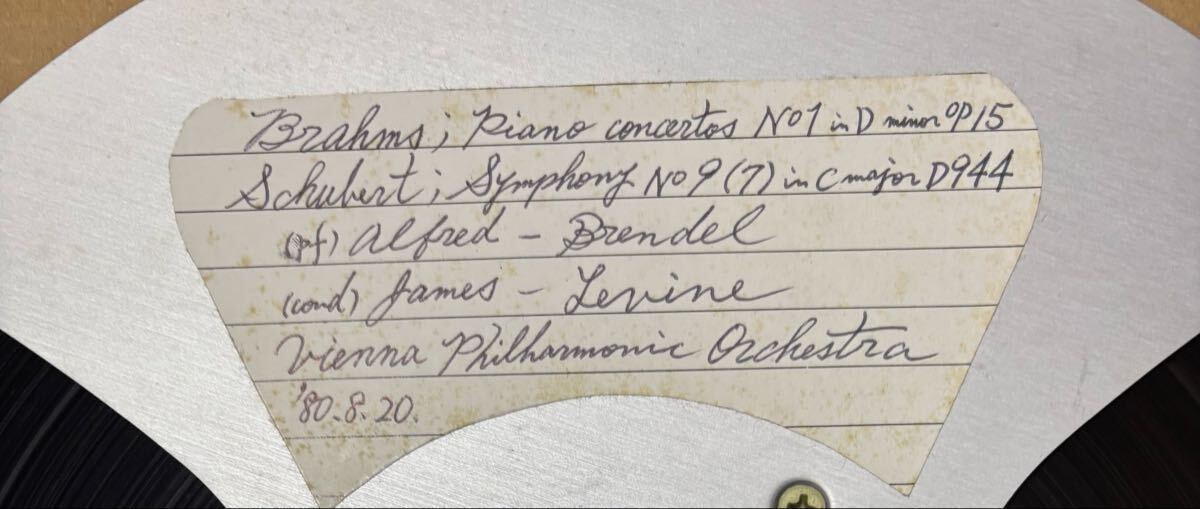 Brahms; Piano concertos No1 in D minor OP15
Schubert; Symphony No9(7) in C major D944
(pf) Alfred - Brendel
(cond) James - Levine
Vienna Philharmonic Orchestra
'80.8.20.